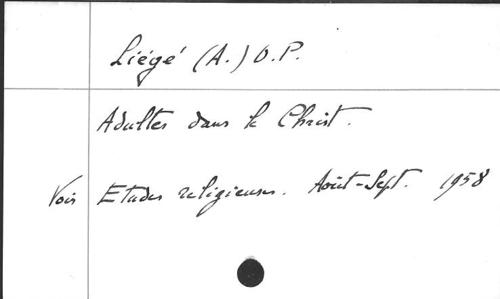 Liégé (A.) O.P.
Adultes dans le Christ.
Voir Etudes religieuses. Août-Sept. 1958